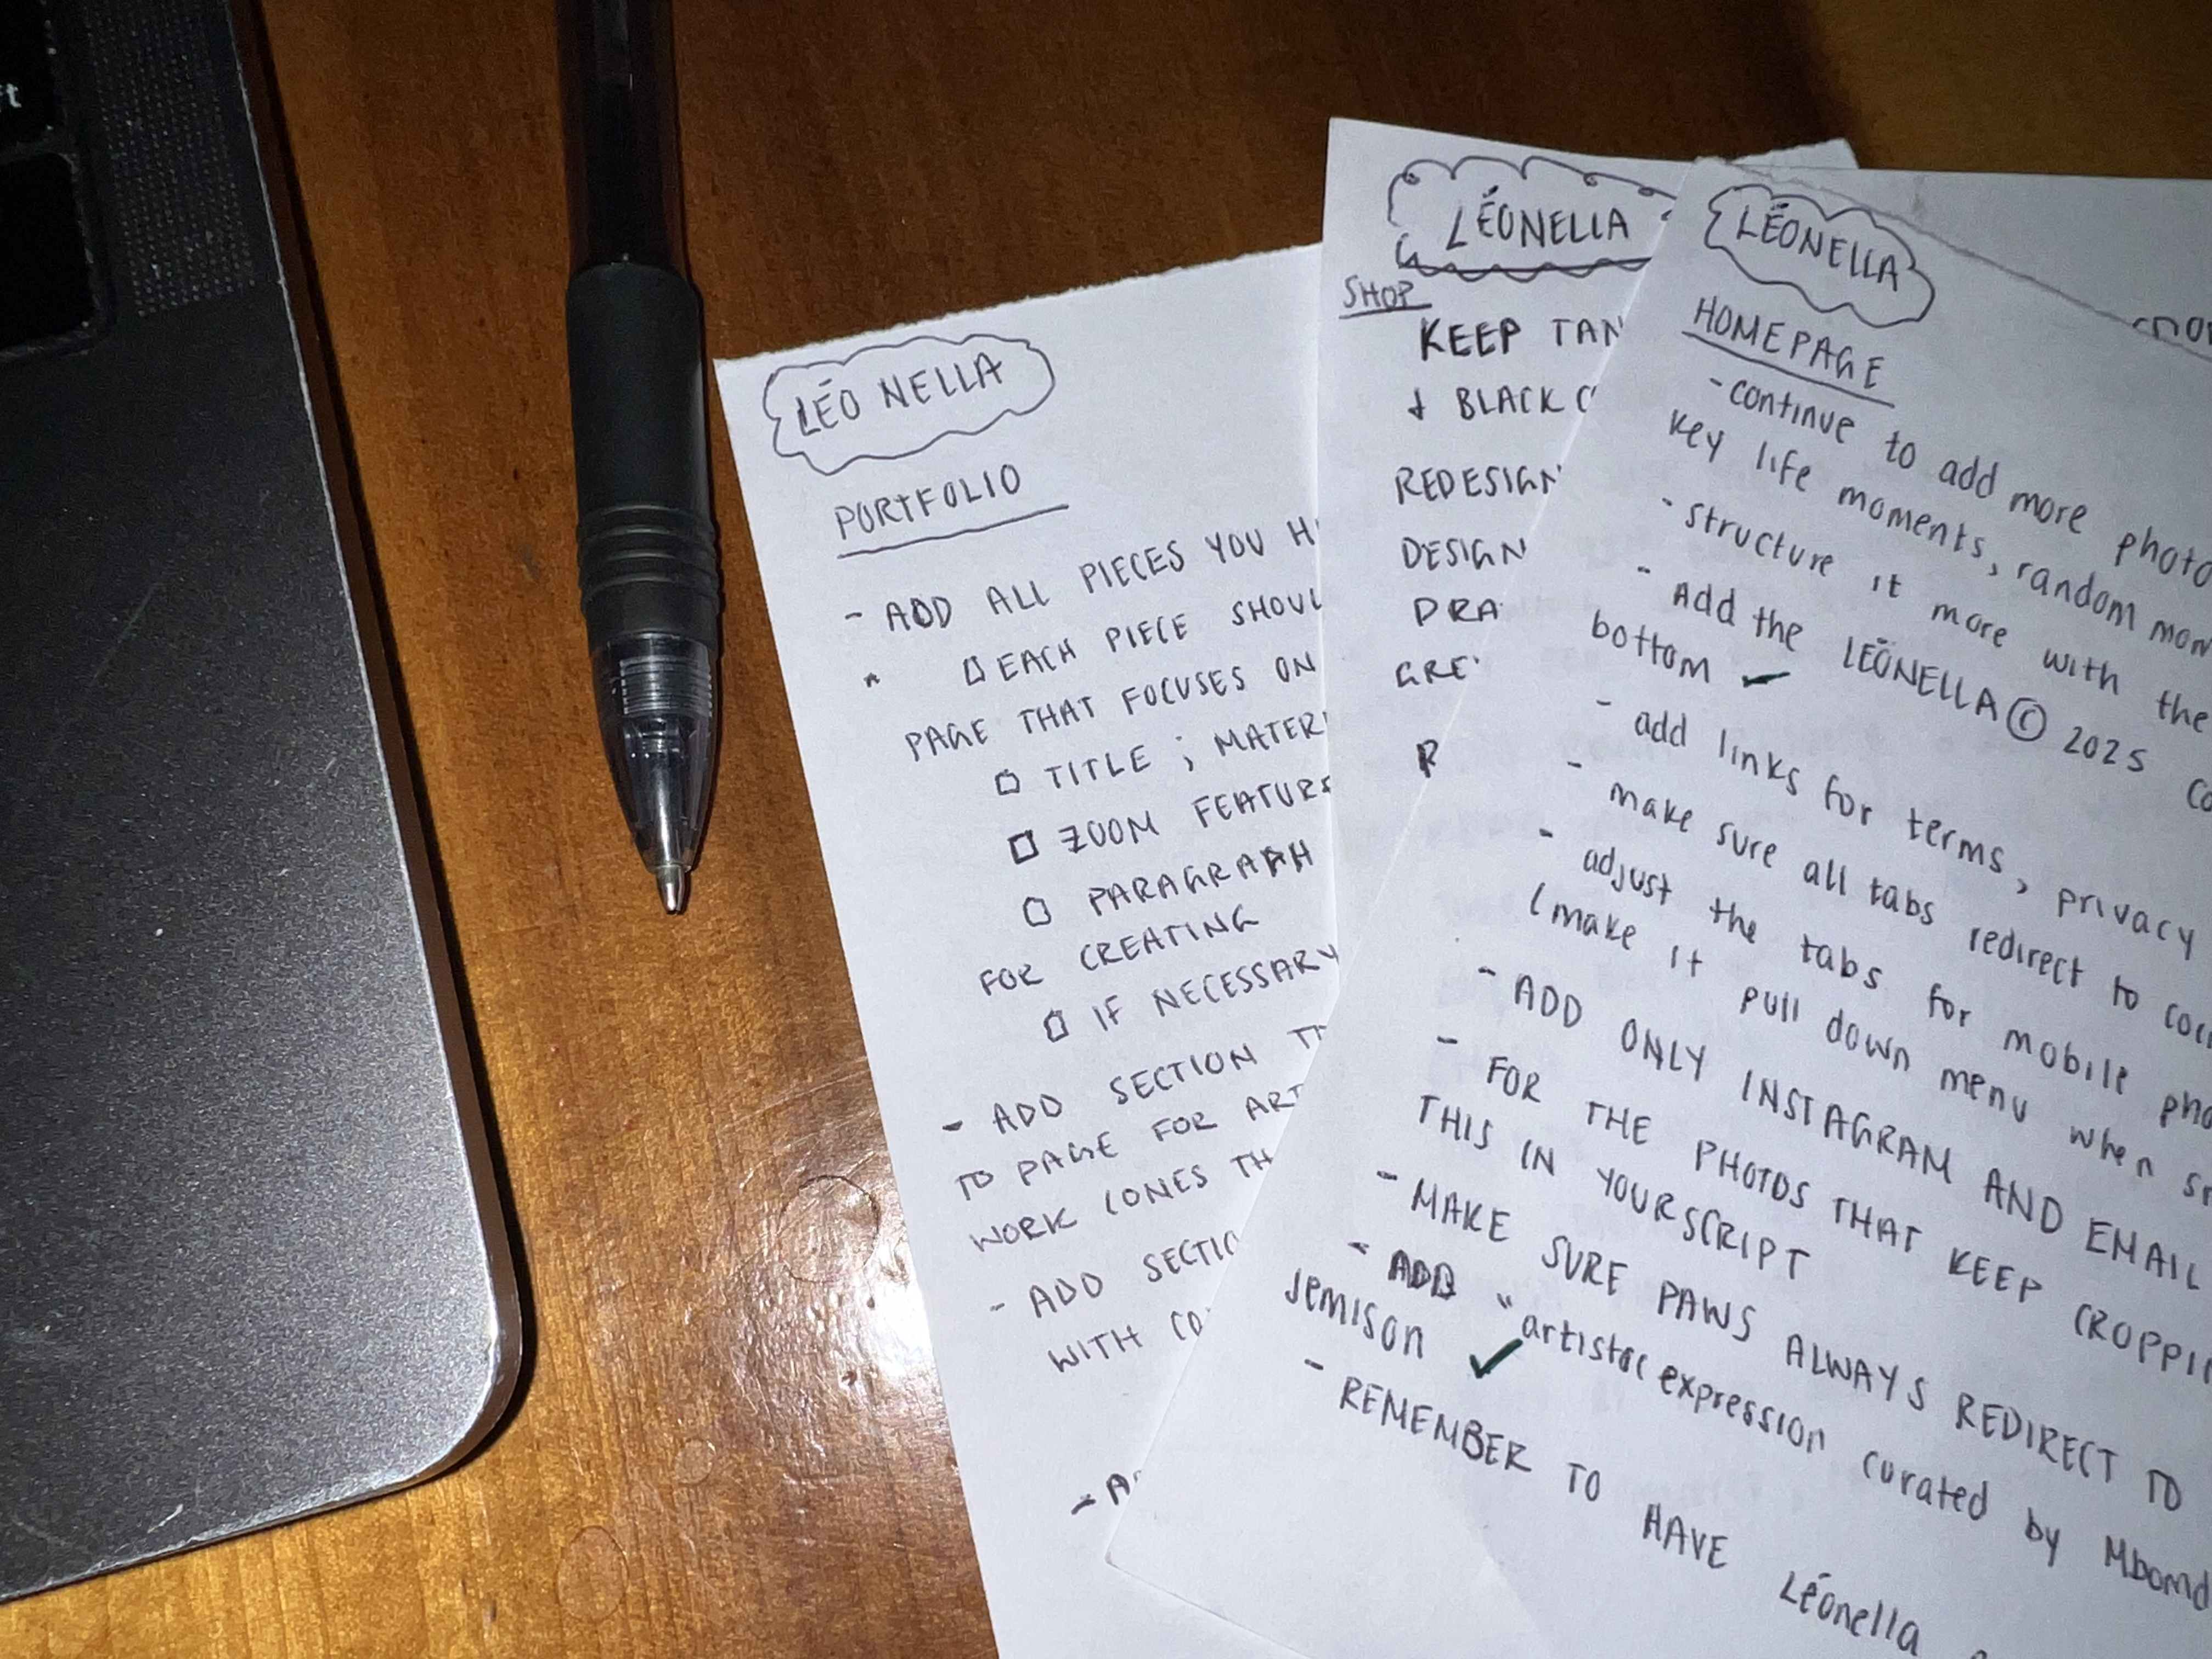 ft
LÉO NELLA
PORTFOLIO
- ADD ALL PIECES YOU
EACH PIECE
PAGE THAT FOCUSES ON
TITLE ;
ZOOM
PARAGRAPH
FOR CREATING
IF NECESSARY
- ADD SECTION
TO PAGE FOR
WORK (ONES
- ADD
WITH
LÉONELLA
SHOP
KEEP
& BLACK
REDESIGN
DESIGN
LÉONELLA
HOMEPAGE
- continue to add more
key life moments, random
- structure it more with the
- Add the LÉONELLA © 2025
bottom ✓
- add links for terms, privacy
- make sure all tabs redirect to
- adjust the tabs for mobile
(make it pull down menu when
- ADD ONLY INSTAGRAM AND EMAIL
- FOR THE PHOTOS THAT KEEP
THIS IN YOUR SCRIPT
- MAKE SURE PAWS ALWAYS REDIRECT TO
- ADD "artistic expression curated by
Jemison ✓
- REMEMBER TO HAVE Léonella